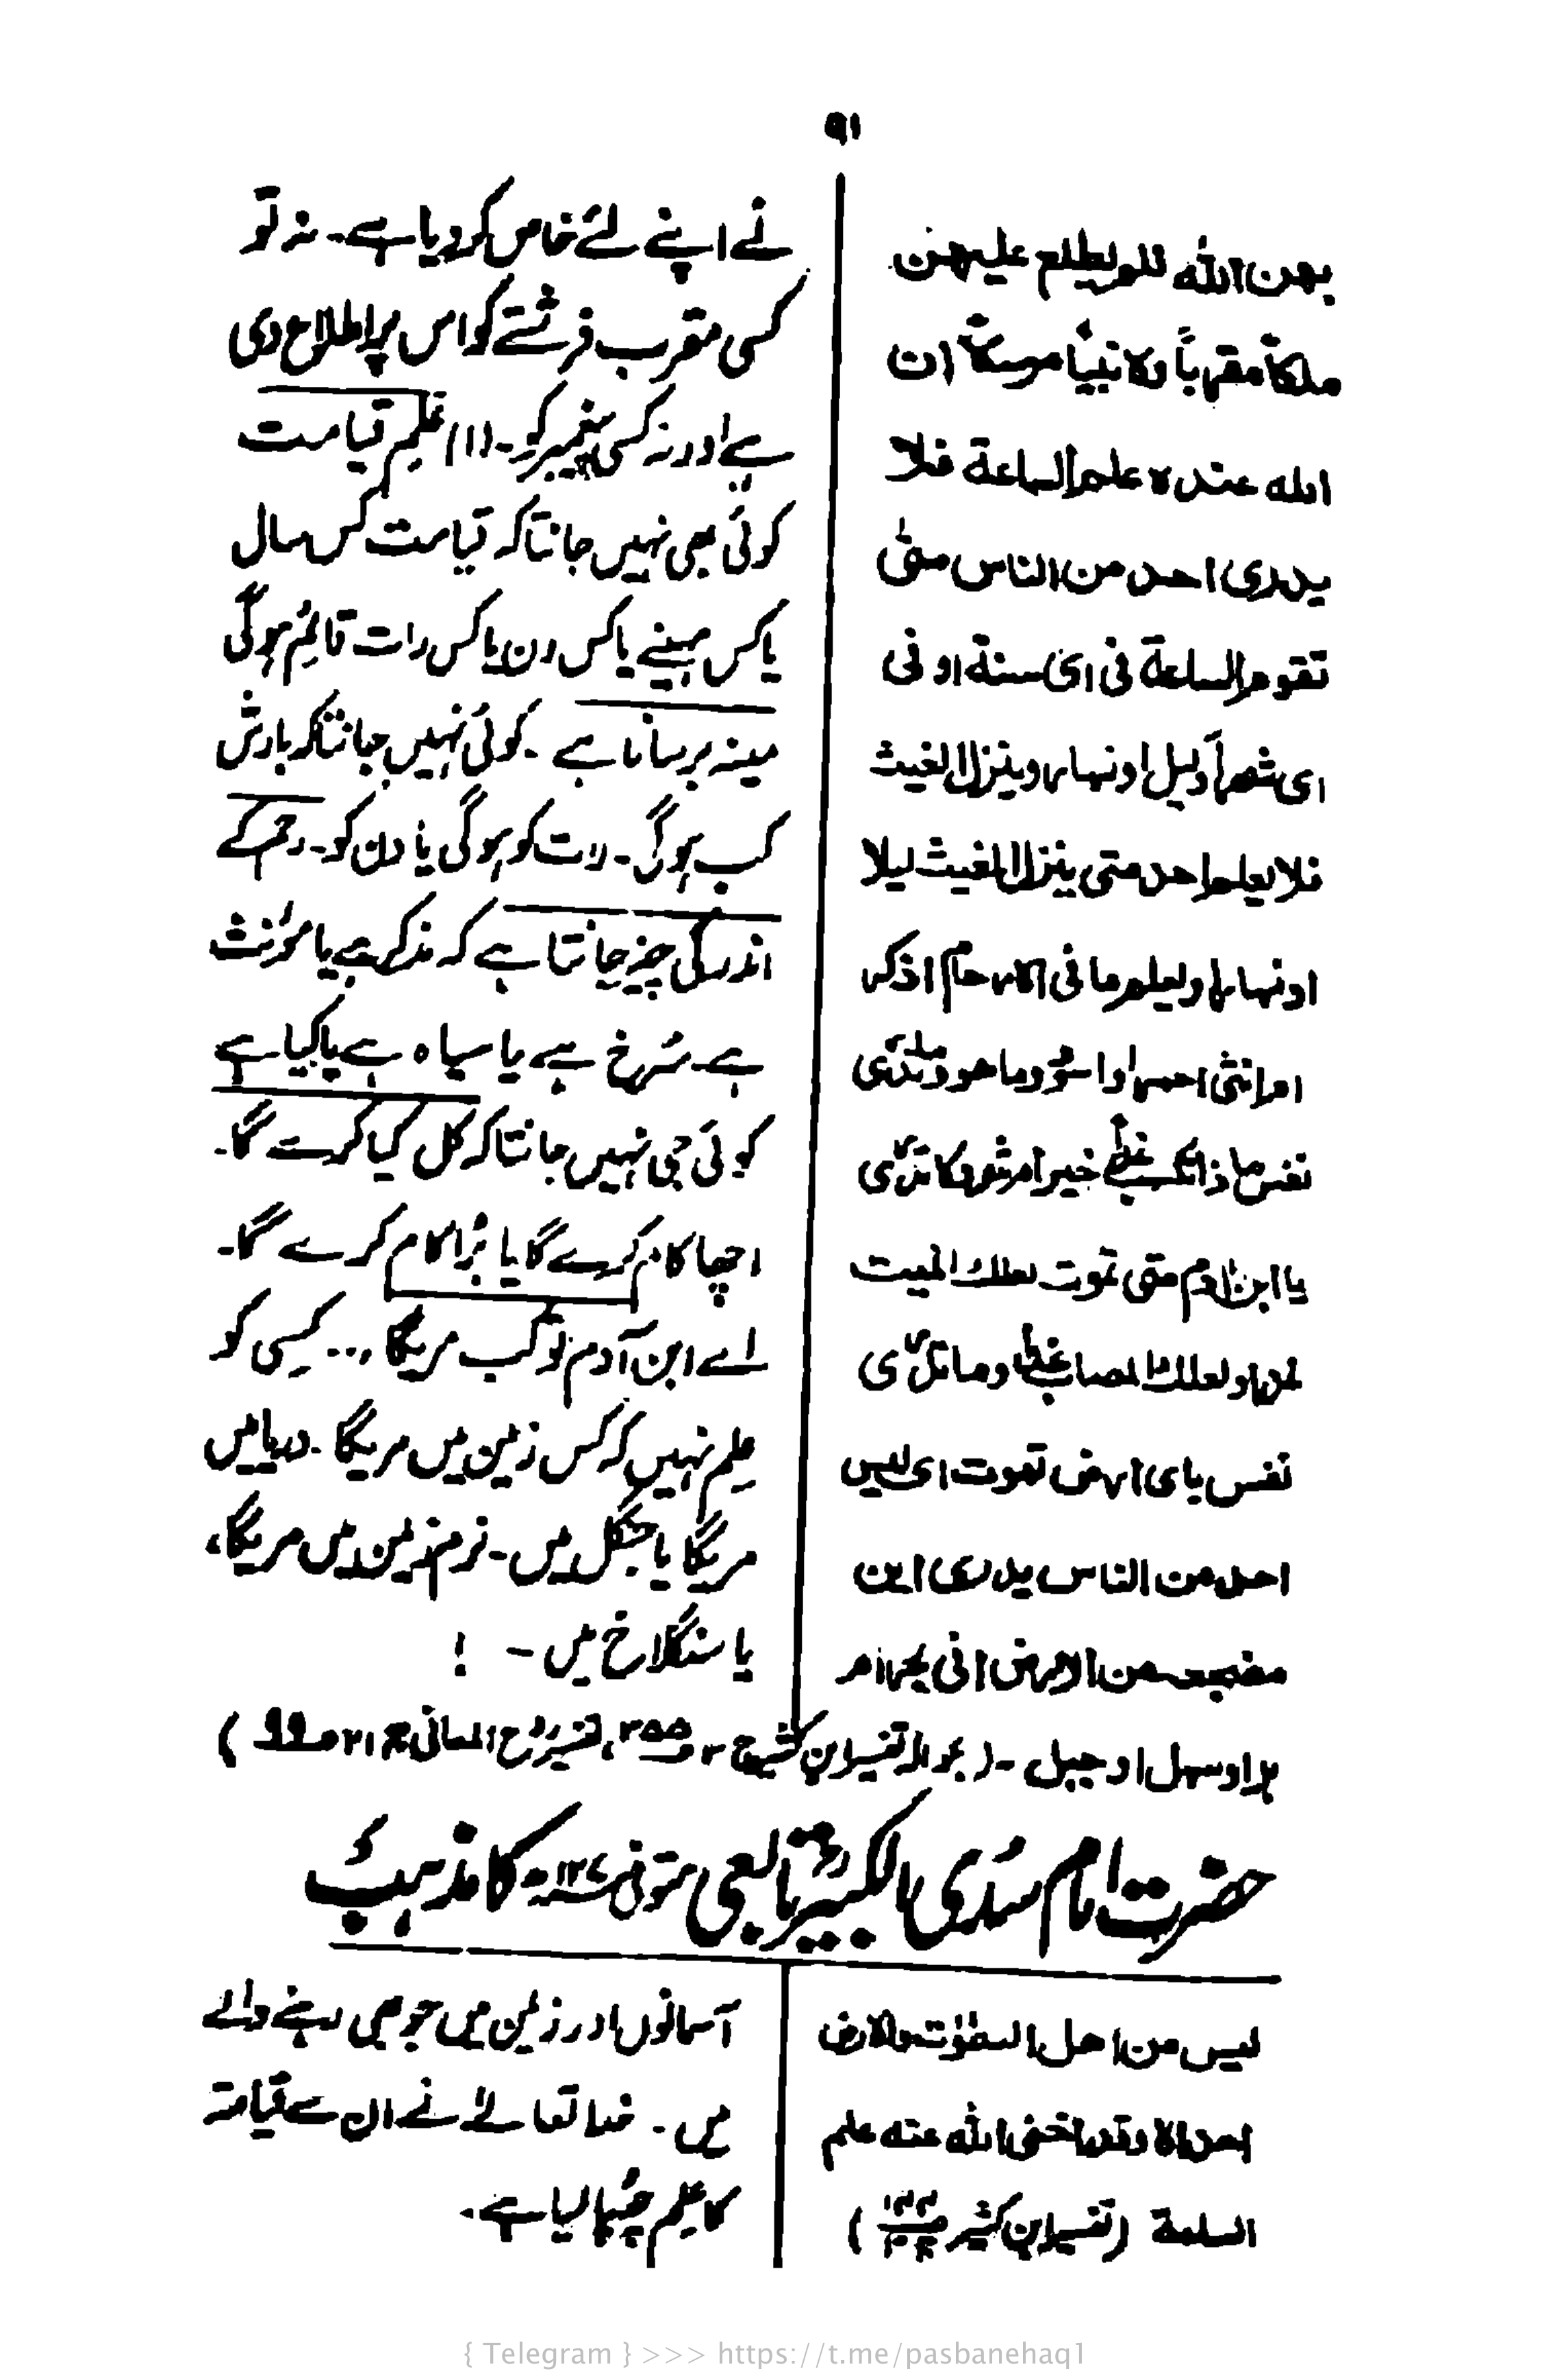 ۹۱
بهن الله فلم يطلع عليهن
ملكا مقربا ولا نبيا مرسلا ان
الله عنده علم الساعة فلا
يدرى احد من الناس متىٰ
تقوم الساعة فى اى سنة او فى
اى شهر او ليل او نهار وينزل الغيث
فلا يعلم احد متى ينزل الغيث ليلا
او نهارا ويعلم ما فى الارحام اذكر
ام انثى احمر او اسود وما هو وما تدرى
نفس ماذا تكسب غدا خير ام شر وما تدرى
يا ابن اٰدم متى تموت لعلك الميت
غدا ولعلك المصاب غدا وما تدرى
نفس باى ارض تموت اى ليس
احد من الناس يدرى اين
مضجعه من الارض افى بحر ام
بر او سهل او جبل ـ (بحوالہ تفسیر ابن کثیر ج ۳ ص۴۵۵، تفسیر روح المعانی ج ۲۱ ص۹۹)
نے اپنے لئے خاص کردیا ہے۔ نہ تو
کسی مقرب فرشتے کو اس پر اطلاع دی
ہے اور نہ کسی پیغمبر کو۔ (۱) علم قیامت
کوئی بھی نہیں جانتا کہ قیامت کس سال
یا کس مہینے یا کس دن یا کس رات قائم ہوگی
مینہ برساتا ہے۔ کوئی نہیں جانتا کہ بارش
کب ہوگی۔ رات کو ہوگی یا دن کو۔ رحم کے
اندر کی چیز جانتا ہے کہ مذکر ہے یا مؤنث
ہے۔ سُرخ ہے یا سیاہ ہے یا کیا ہے
کوئی بھی نہیں جانتا کہ کل کیا کرے گا۔
اچھا کام کرے گا یا بُرا کام کرے گا۔
اے ابن آدم تو کب مریگا ... کسی کو
علم نہیں کہ کس زمین میں مریگا۔ دریا میں
مریگا یا جنگل میں۔ نرم زمین میں مریگا،
یا سنگلاخ میں ۔ !
حضرت امام سُدّی الکبیرؒ تابعی متوفی ۱۲۷ھ کا مذہب
ليس من اهل السمٰوٰت والارض
احد الا وقد اخفى الله عنه علم
الساعة (تفسیر ابن کثیر)
آسمانوں اور زمین میں جو بھی رہنے والے
ہیں۔ خدا تعالےٰ نے ان سے قیامت
کا علم چُھپا لیا ہے۔
{ Telegram } >>> https://t.me/pasbanehaq1